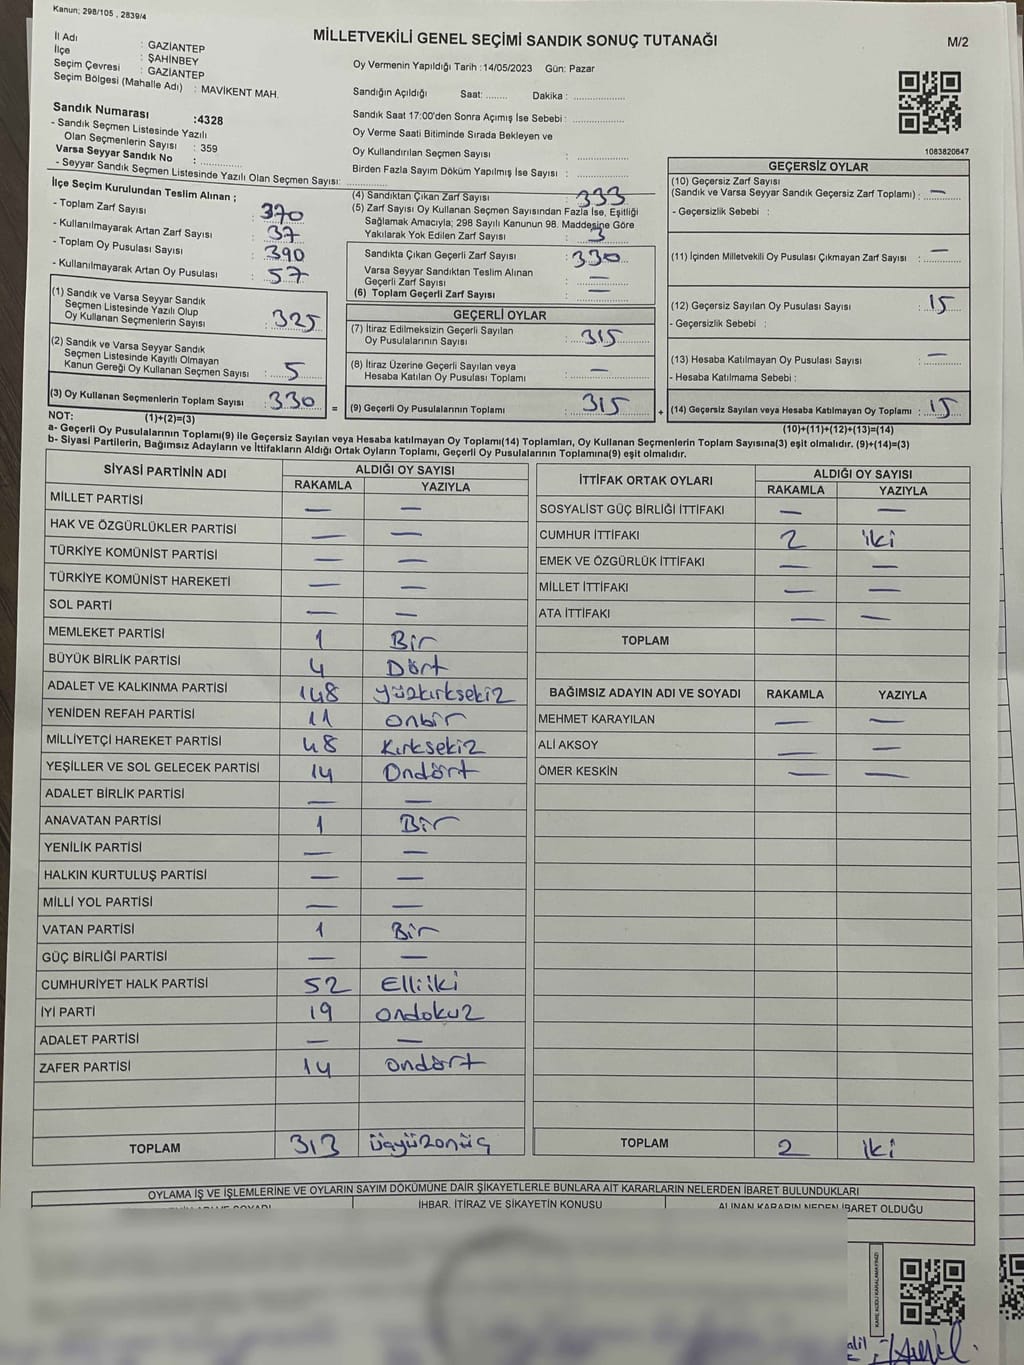 Kanun; 298/105 , 2839/4
MİLLETVEKİLİ GENEL SEÇİMİ SANDIK SONUÇ TUTANAĞI
M/2
İl Adı : GAZİANTEP
İlçe : ŞAHİNBEY
Seçim Çevresi : GAZİANTEP
Seçim Bölgesi (Mahalle Adı) : MAVİKENT MAH.
Oy Vermenin Yapıldığı Tarih :14/05/2023 Gün: Pazar
Sandığın Açıldığı Saat: ........ Dakika : ....................
Sandık Saat 17:00'den Sonra Açımış İse Sebebi : ....................
Oy Verme Saati Bitiminde Sırada Bekleyen ve
Oy Kullandırılan Seçmen Sayısı : ....................
Birden Fazla Sayım Döküm Yapılmış İse Sayısı : ....................
Sandık Numarası :4328
- Sandık Seçmen Listesinde Yazılı
Olan Seçmenlerin Sayısı : 359
Varsa Seyyar Sandık No : ..............
- Seyyar Sandık Seçmen Listesinde Yazılı Olan Seçmen Sayısı: ..............
1083820647
İlçe Seçim Kurulundan Teslim Alınan ;
- Toplam Zarf Sayısı : 370
- Kullanılmayarak Artan Zarf Sayısı : 37
- Toplam Oy Pusulası Sayısı : 390
- Kullanılmayarak Artan Oy Pusulası : 57
(1) Sandık ve Varsa Seyyar Sandık
Seçmen Listesinde Yazılı Olup
Oy Kullanan Seçmenlerin Sayısı : 325
(2) Sandık ve Varsa Seyyar Sandık
Seçmen Listesinde Kayıtlı Olmayan
Kanun Gereği Oy Kullanan Seçmen Sayısı : 5
(3) Oy Kullanan Seçmenlerin Toplam Sayısı : 330 =
(1)+(2)=(3)
(4) Sandıktan Çıkan Zarf Sayısı : 333
(5) Zarf Sayısı Oy Kullanan Seçmen Sayısından Fazla İse, Eşitliği
Sağlamak Amacıyla; 298 Sayılı Kanunun 98. Maddesine Göre
Yakılarak Yok Edilen Zarf Sayısı : 3
Sandıkta Çıkan Geçerli Zarf Sayısı : 330
Varsa Seyyar Sandıktan Teslim Alınan
Geçerli Zarf Sayısı : —
(6) Toplam Geçerli Zarf Sayısı : —
GEÇERLİ OYLAR
(7) İtiraz Edilmeksizin Geçerli Sayılan
Oy Pusulalarının Sayısı : 315
(8) İtiraz Üzerine Geçerli Sayılan veya
Hesaba Katılan Oy Pusulası Toplamı : —
(9) Geçerli Oy Pusulalarının Toplamı : 315 +
GEÇERSİZ OYLAR
(10) Geçersiz Zarf Sayısı
(Sandık ve Varsa Seyyar Sandık Geçersiz Zarf Toplamı) : —
- Geçersizlik Sebebi :
(11) İçinden Milletvekili Oy Pusulası Çıkmayan Zarf Sayısı : —
(12) Geçersiz Sayılan Oy Pusulası Sayısı : 15
- Geçersizlik Sebebi :
(13) Hesaba Katılmayan Oy Pusulası Sayısı : —
- Hesaba Katılmama Sebebi :
(14) Geçersiz Sayılan veya Hesaba Katılmayan Oy Toplamı : 15
(10)+(11)+(12)+(13)=(14)
NOT:
a- Geçerli Oy Pusulalarının Toplamı(9) ile Geçersiz Sayılan veya Hesaba katılmayan Oy Toplamı(14) Toplamları, Oy Kullanan Seçmenlerin Toplam Sayısına(3) eşit olmalıdır. (9)+(14)=(3)
b- Siyasi Partilerin, Bağımsız Adayların ve İttifakların Aldığı Ortak Oyların Toplamı, Geçerli Oy Pusulalarının Toplamına(9) eşit olmalıdır.
SİYASİ PARTİNİN ADI ALDIĞI OY SAYISI
RAKAMLA YAZIYLA
MİLLET PARTİSİ — —
HAK VE ÖZGÜRLÜKLER PARTİSİ — —
TÜRKİYE KOMÜNİST PARTİSİ — —
TÜRKİYE KOMÜNİST HAREKETİ — —
SOL PARTİ — —
MEMLEKET PARTİSİ 1 Bir
BÜYÜK BİRLİK PARTİSİ 4 Dört
ADALET VE KALKINMA PARTİSİ 148 yüzkırksekiz
YENİDEN REFAH PARTİSİ 11 onbir
MİLLİYETÇİ HAREKET PARTİSİ 48 Kırksekiz
YEŞİLLER VE SOL GELECEK PARTİSİ 14 Ondört
ADALET BİRLİK PARTİSİ — —
ANAVATAN PARTİSİ 1 Bir
YENİLİK PARTİSİ — —
HALKIN KURTULUŞ PARTİSİ — —
MİLLİ YOL PARTİSİ — —
VATAN PARTİSİ 1 Bir
GÜÇ BİRLİĞİ PARTİSİ — —
CUMHURİYET HALK PARTİSİ 52 Elliiki
İYİ PARTİ 19 ondokuz
ADALET PARTİSİ — —
ZAFER PARTİSİ 14 ondört
TOPLAM 313 üçyüzonüç
İTTİFAK ORTAK OYLARI ALDIĞI OY SAYISI
RAKAMLA YAZIYLA
SOSYALİST GÜÇ BİRLİĞİ İTTİFAKI — —
CUMHUR İTTİFAKI 2 iki
EMEK VE ÖZGÜRLÜK İTTİFAKI — —
MİLLET İTTİFAKI — —
ATA İTTİFAKI — —
TOPLAM
BAĞIMSIZ ADAYIN ADI VE SOYADI RAKAMLA YAZIYLA
MEHMET KARAYILAN — —
ALİ AKSOY — —
ÖMER KESKİN — —
TOPLAM 2 iki
OYLAMA İŞ VE İŞLEMLERİNE VE OYLARIN SAYIM DÖKÜMÜNE DAİR ŞİKAYETLERLE BUNLARA AİT KARARLARIN NELERDEN İBARET BULUNDUKLARI
İHBAR, İTİRAZ VE ŞİKAYETİN KONUSU
ALINAN KARARIN NEDEN İBARET OLDUĞU
KARE KODU KARALAMAYINIZ!